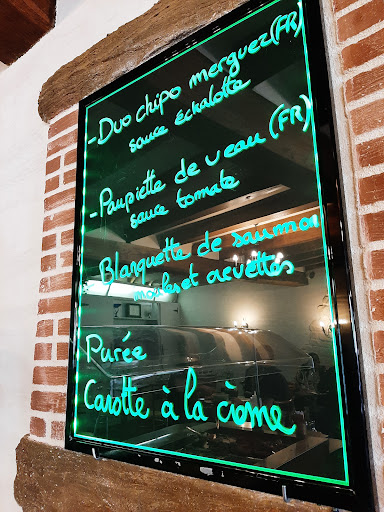 - Duo chipo merguez (FR)
sauce échalotte
- Paupiette de veau (FR)
sauce tomate
Blanquette de saumon
moules et crevettes
Purée
Carotte à la crème